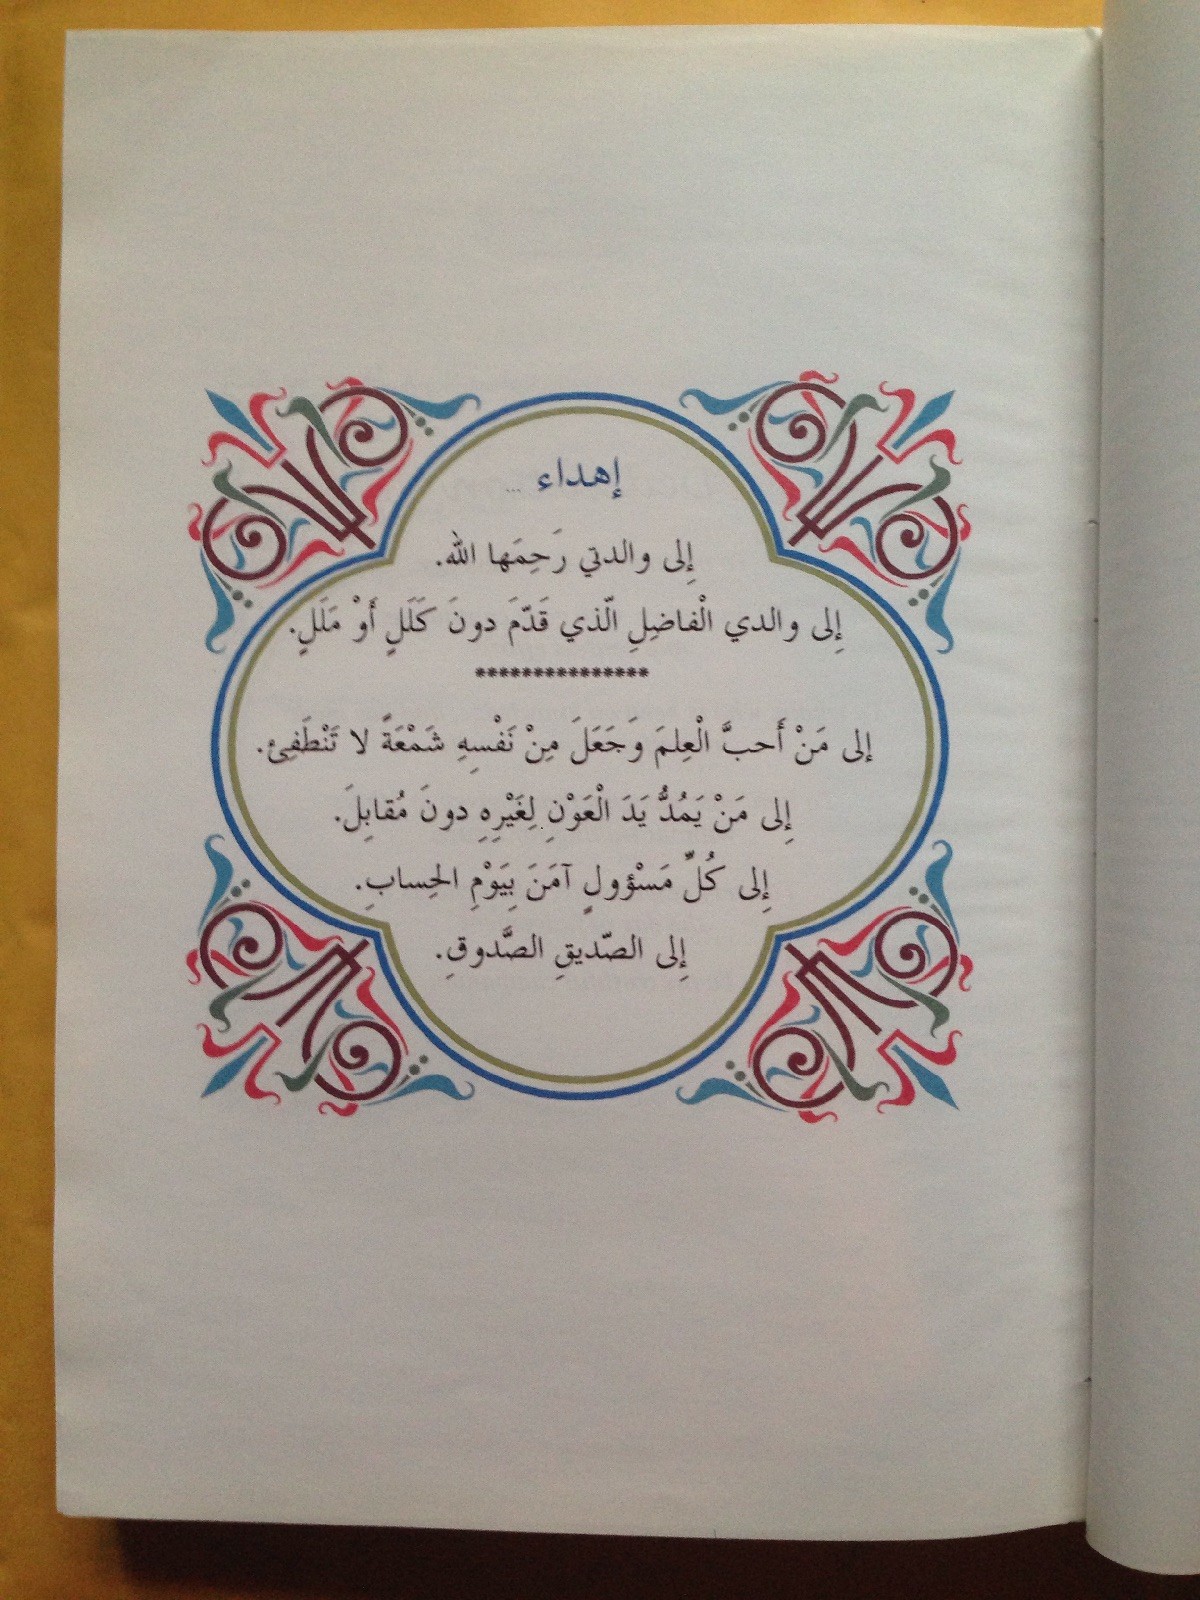 إهداء ...
إِلى والدتي رَحِمَها الله.
إِلى والدي الْفاضِلِ الّذي قَدّمَ دونَ كَلَلٍ أَوْ مَلَلٍ.
***************
إلى مَنْ أَحبَّ الْعِلمَ وَجَعَلَ مِنْ نَفْسِهِ شَمْعَةً لا تَنْطَفِئ.
إِلى مَنْ يَمُدُّ يَدَ الْعَوْنِ لِغَيْرِهِ دونَ مُقابِلَ.
إِلى كُلِّ مَسْؤولٍ آمَنَ بِيَوْمِ الحِسابِ.
إِلى الصّديقِ الصَّدوقِ.